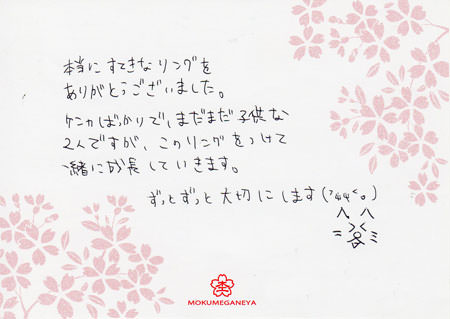 本当にすてきなリングを
ありがとうございました。
ケンカばっかりで、まだまだ子供な
2人ですが、このリングをつけて
一緒に成長していきます。
ずっとずっと大切にします
MOKUMEGANEYA